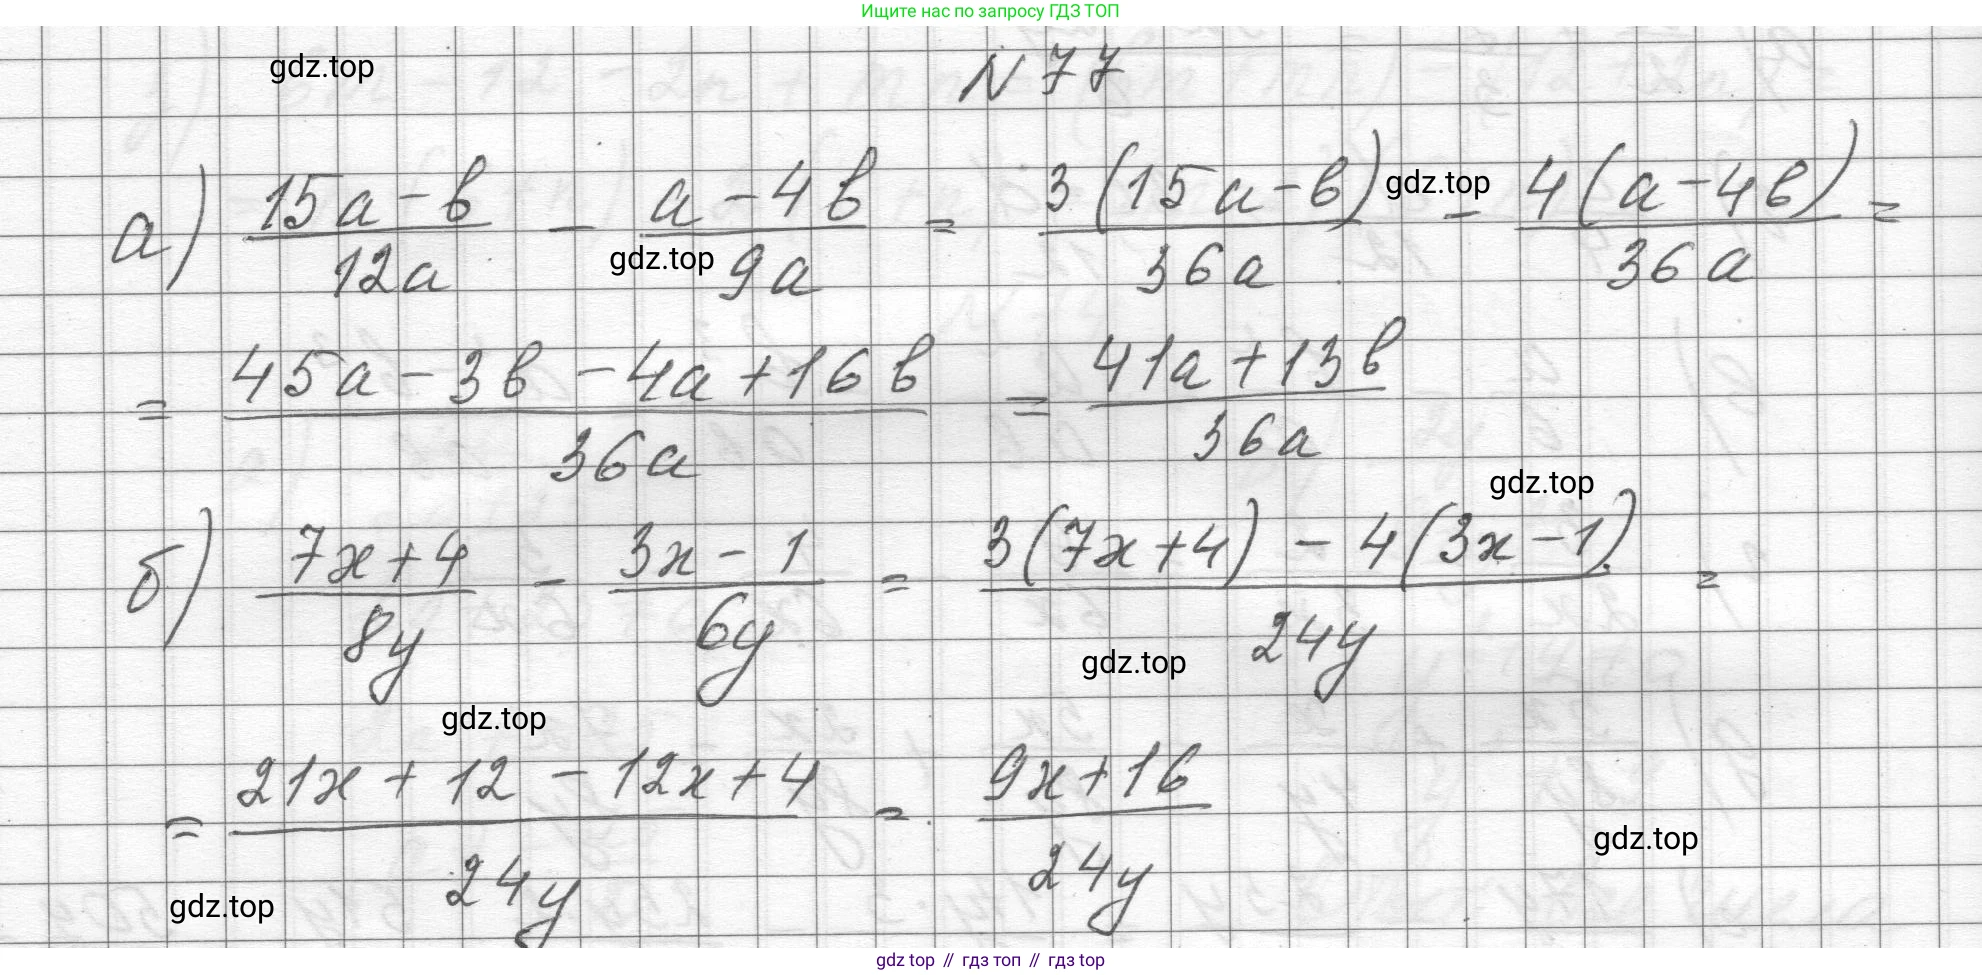 Ищите нас по запросу ГДЗ ТОП
gdz.top
N 77
а) (15a-b)/(12a) - (a-4b)/(9a) = 3(15a-b)/(36a) - 4(a-4b)/(36a) =
gdz.top
gdz.top
= (45a-3b-4a+16b)/(36a) = (41a+13b)/(36a)
gdz.top
б) (7x+4)/(8y) - (3x-1)/(6y) = (3(7x+4)-4(3x-1))/(24y) =
gdz.top
gdz.top
= (21x+12-12x+4)/(24y) = (9x+16)/(24y)
gdz.top
gdz.top
gdz top // гдз топ // гдз top